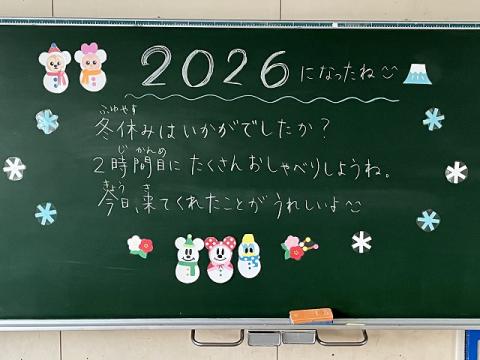 2026になったね
ふゆやす
冬休みはいかがでしたか？
じ かんめ
2時間目にたくさんおしゃべりしようね。
きょう き
今日、来てくれたことがうれしいよ